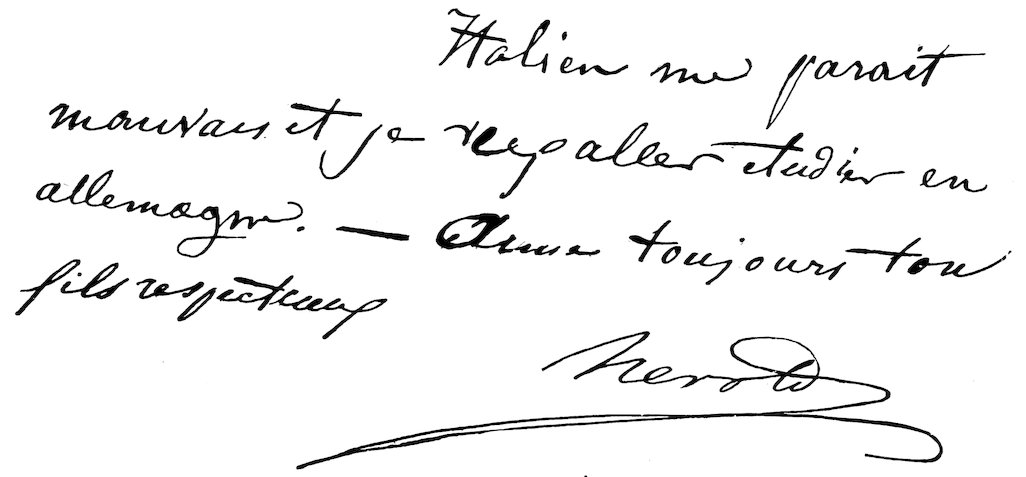 Italien me parait
mauvais et je veux aller etudier en
allemagne. — Aime toujours ton
fils respectueux
herold